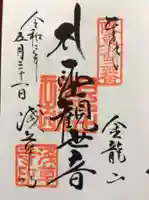 奉拝
金龍山
聖観世音
浅草寺
令和
五月三十一日